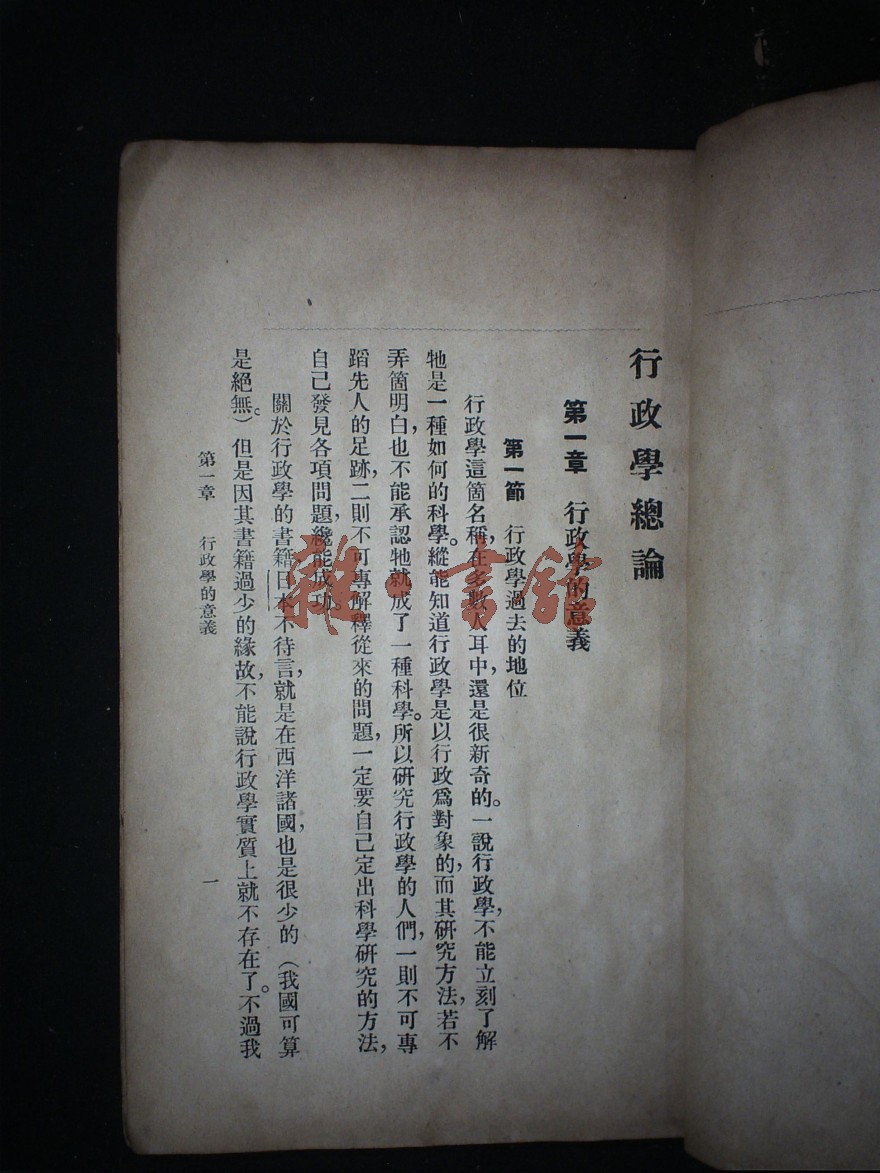 行政學總論
第一章　行政學的意義
第一節　行政學過去的地位
行政學這箇名稱，在多數人耳中，還是很新奇的。一說行政學，不能立刻了解
牠是一種如何的科學。縱能知道行政學是以行政爲對象的，而其研究方法，若不
弄箇明白，也不能承認牠就成了一種科學。所以研究行政學的人們，一則不可專
蹈先人的足跡，二則不可專解釋從來的問題，一定要自己定出科學研究的方法，
自己發見各項問題，纔能成功。
關於行政學的書籍日本不待言，就是在西洋諸國，也是很少的（我國可算
是絕無。）但是因其書籍過少的緣故，不能說行政學實質上就不存在了。不過我
第一章　行政學的意義　一
雜·書館